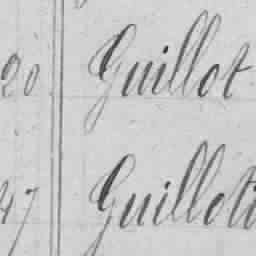 20 Guillot
47 Guilloti